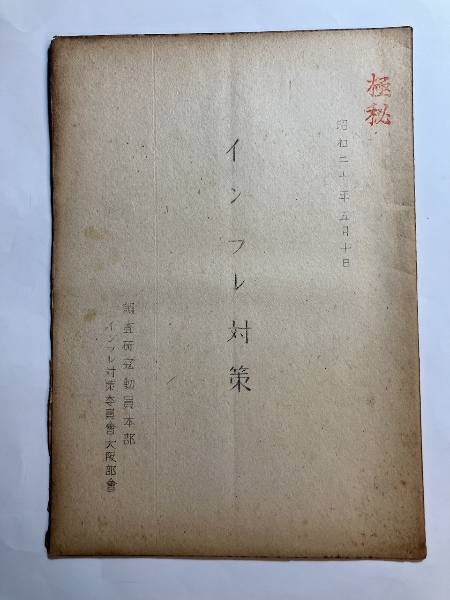 極秘
昭和二十年五月十日
インフレ対策
調査研究動員本部
インフレ対策委員會大阪部會